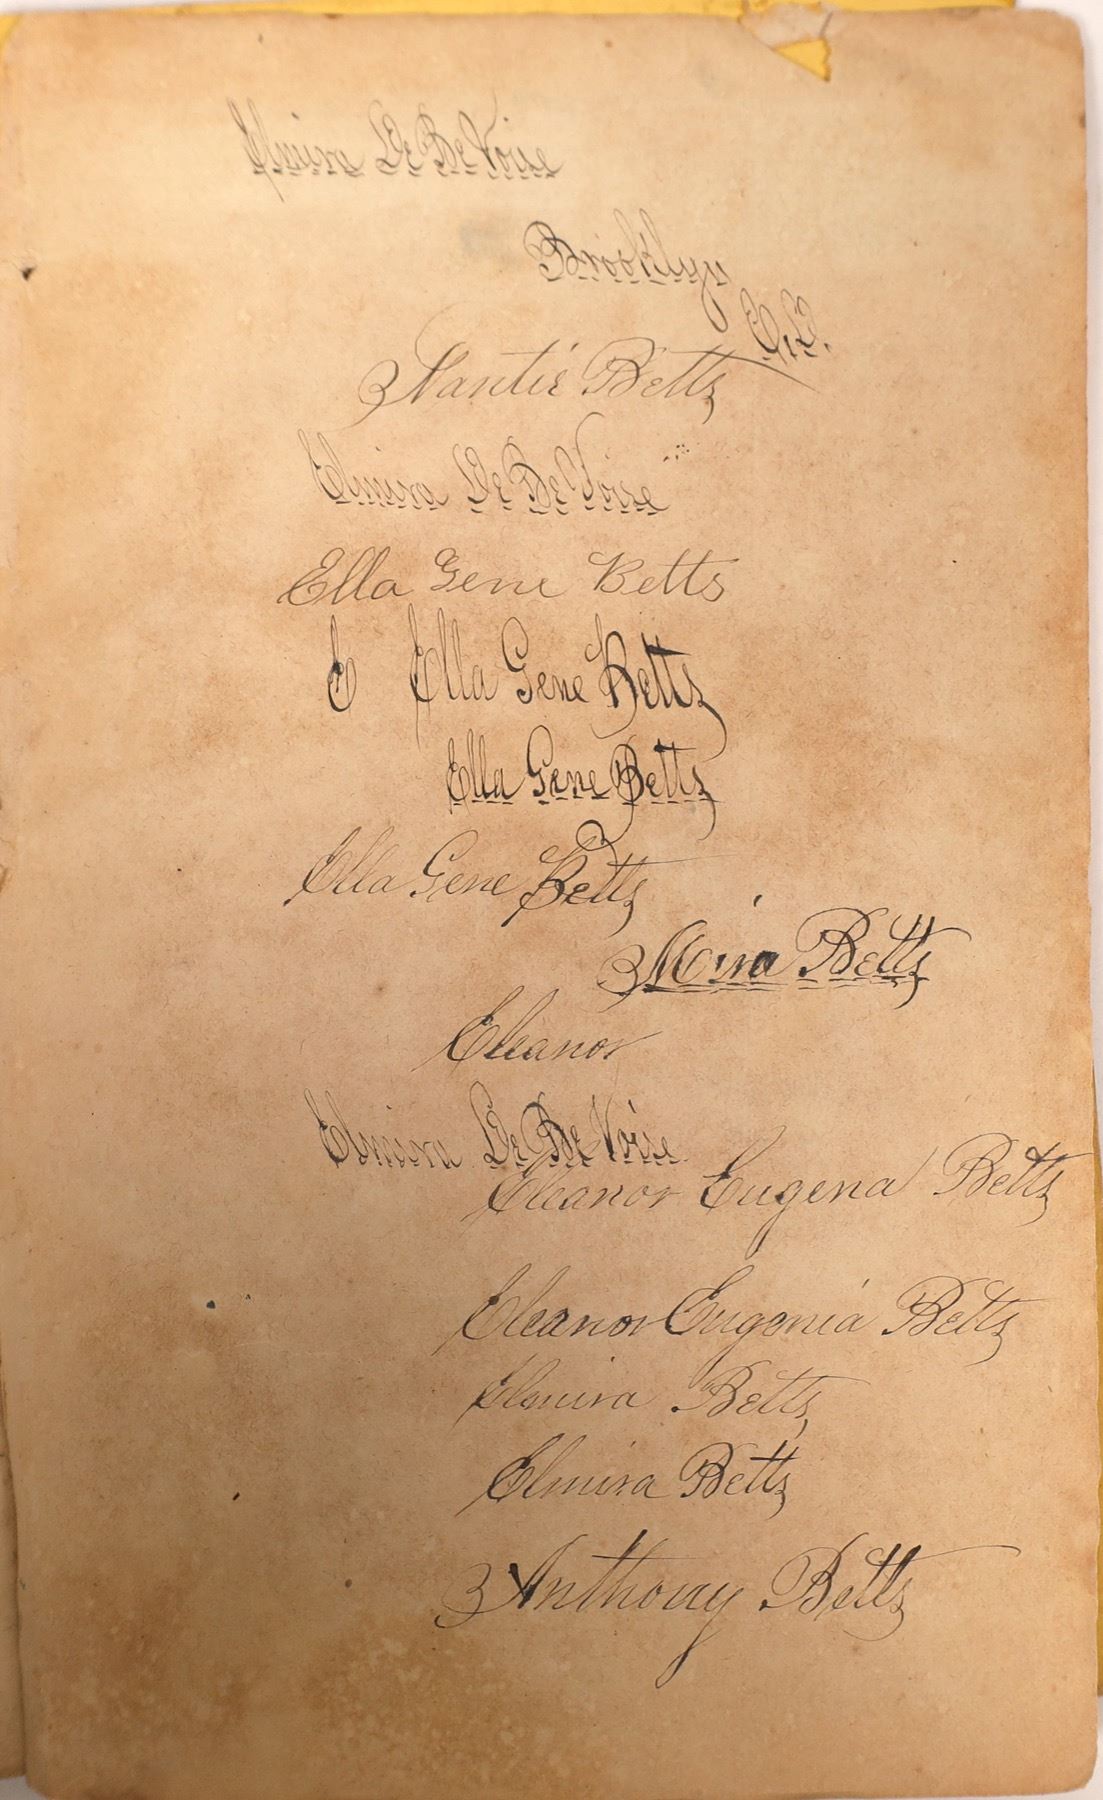 Elmira De Be Voise
Brooklyn
E.D.
Nantie Betts
Elmira De Be Voise
Ella Gene Betts
E Ella Gene Betts
Ella Gene Betts
Ella Gene Betts
Mira Betts
Eleanor
Elmira De Be Voise
Eleanor Eugena Betts
Eleanor Eugenia Betts
Elmira Betts
Elmira Betts
Anthony Betts